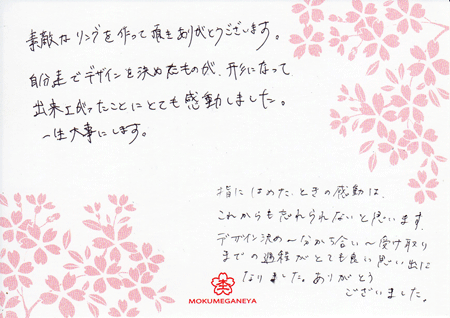 素敵なリングを作って頂きありがとうございます。
自分達でデザインを決めたものが、形になって
出来上がったことにとても感動しました。
一生大事にします。
指にはめたときの感動は、
これからも忘れられないと思います。
デザイン決め〜分かち合い〜受け取り
までの過程がとても良い思い出に
なりました。ありがとう
ございました。
MOKUMEGANEYA